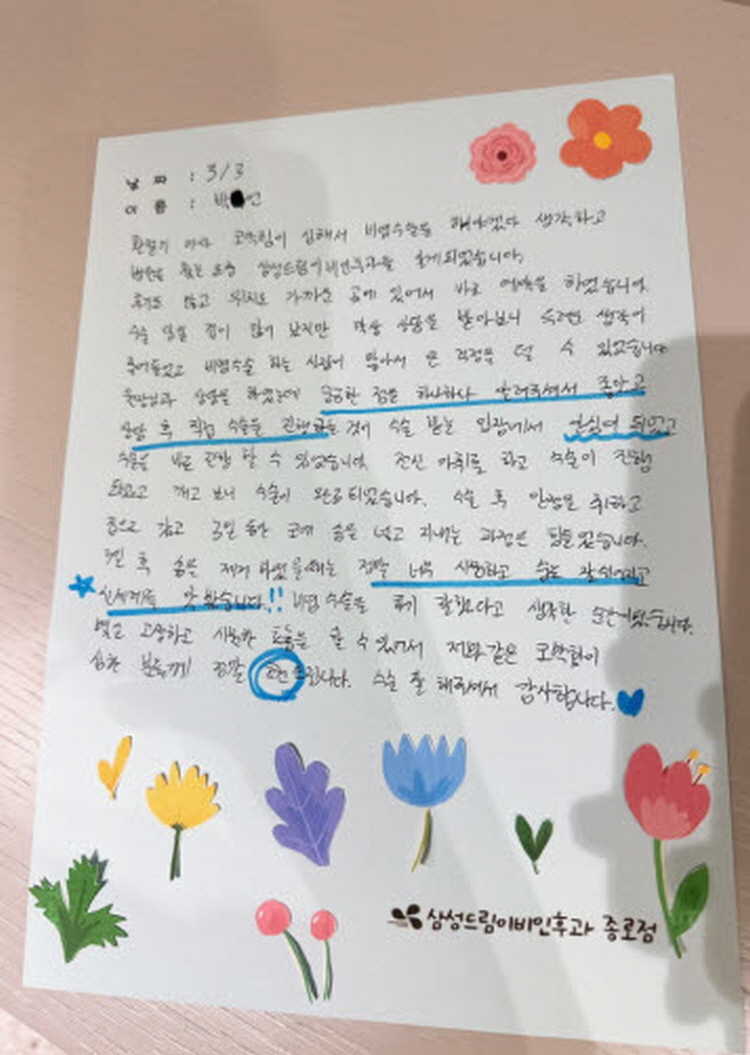 날 짜 : 3/3
이 름 : 박 언
환절기 마다 코막힘이 심해서 비염수술을 해야겠다 생각하고
병원을 찾는 도중 삼성드림이비인후과를 알게되었습니다.
후기도 많고 위치도 가까운 곳에 있어서 바로 예약을 하였습니다.
수술 당일 겁이 많이 났지만 막상 상담을 받아보니 두려운 생각이
줄어들었고 비염수술 하는 사람이 많아서 큰 걱정을 덜 수 있었습니다
원장님과 상담을 하였는데 궁금한 점을 하나하나 알려주셔서 좋았고
상담 후 직접 수술을 진행하는 것이 수술 받는 입장에서 안심이 되었고
수술을 바로 결정 할 수 있었습니다. 전신 마취를 하고 수술이 진행
되었고 깨고 보니 수술이 완료되었습니다. 수술 후 안정을 취하고
집으로 갔고 동안 코에 솜을 넣고 지내는 과정은 힘들었습니다.
후 솜을 제거 하였을때는 정말 너무 시원하고 숨도 잘 쉬어지고
신세계를 맛 봤습니다!! 비염 수술을 하기 잘했다고 생각한 순간이었습니다.
고생하고 시원한 호흡을 할 수 있어서 저와 같은 코막힘이
심한 분들께 정말 추천드립니다. 수술 잘 해주셔서 감사합니다.
삼성드림이비인후과 종로점